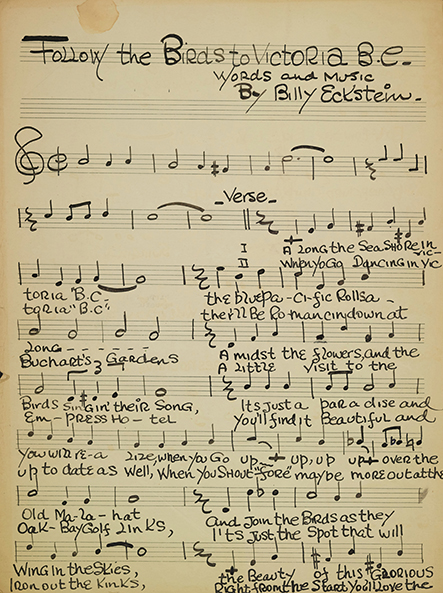 Follow the Birds to Victoria B.C.
Words and Music
By Billy Eckstein
Verse
I A long the Sea Shore in Vic-
II When you Go Dancing in Vic
toria "B.C." the blue Pa-ci-fic Rolls a
toria "B.C." the'll Be Romancing down at
long A midst the flowers, and the
Buchart's Gardens A Little visit to the
3
Birds Singin' their Song, Its just a para dise and
Em-PRESS Ho-tel You'll find it Beautiful and
you will re-a lize, when you Go up up, up up over the
up to date as well, When you Shout "Fore" may be more out at the
Old Ma-la-hat And Join the Birds as they
Oak-Bay Golf Links, Its Just the Spot that will
Wing in the Skies, the Beauty of this Glorious
Iron out the Kinks, Right from the Start You'll Love the